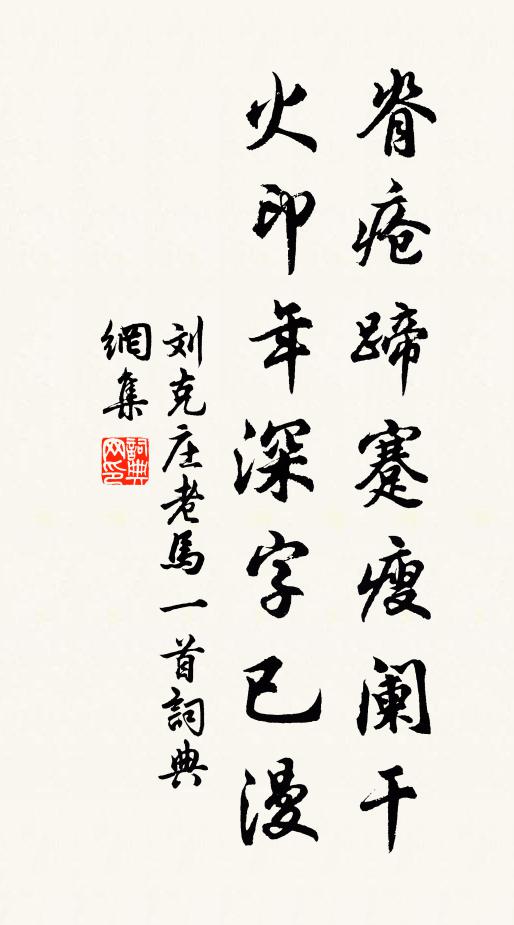 脊疮蹄蹇瘦阑干
火印年深字已漫
刘克庄老馬一首詞典
網集
詞典
网印